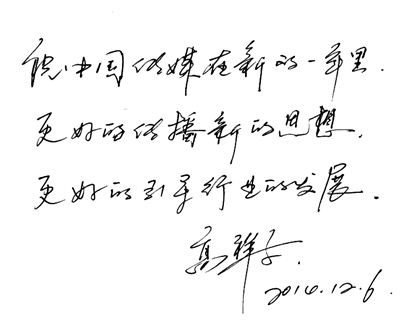 祝中国传媒在新的一年里.
更好的传播新的思想.
更好的引导行业的发展.
高群
2014.12.6